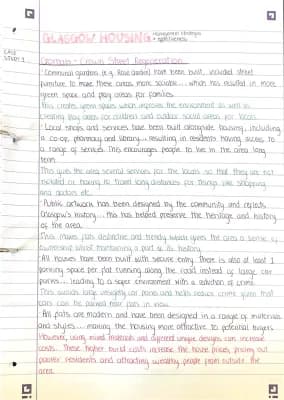 GLASGOW HOUSING - management strategies + effectiveness
CASE STUDY 1
Gorbals - Crown Street Regeneration
'Communal gardens (e.g. Rose Garden) have been built, included street
furniture to make these areas more sociable... which has resulted in more
green space and play areas for families.
This creates green spaces which improves the environment as well as
creating play areas for children and outdoor social areas for locals.
'Local shops and services have been built alongside housing, including
a co-op, pharmacy and library... resulting in residents having access to
a range of services. This encourages people to live in the area long
term.
This gives the area several services for the locals so that they are not
isolated or having to travel long distances for things like shopping
and doctors etc.
'Public artwork has been designed by the community and reflects
Glasgow's history... this has helped preserve the heritage and history
of the area.
This makes flats distinctive and trendy which gives the area a sense of
ownership whilst maintaining a part of its history.
'All houses have been built with secure entry. There is also at least 1
parking space per flat running along the road instead of large car
parks... leading to a safer environment with a reduction of crime.
This avoids large unsightly car parks and helps reduce crime given that
cars can be parked near flats in view.
'All flats are modern and have been designed in a range of materials
and styles... making the housing more attractive to potential buyers.
However, using mixed materials and different unique designs can increase
costs. These higher build costs increase the house prices, pricing out
poorer residents and attracting wealthy people from outside the
area.